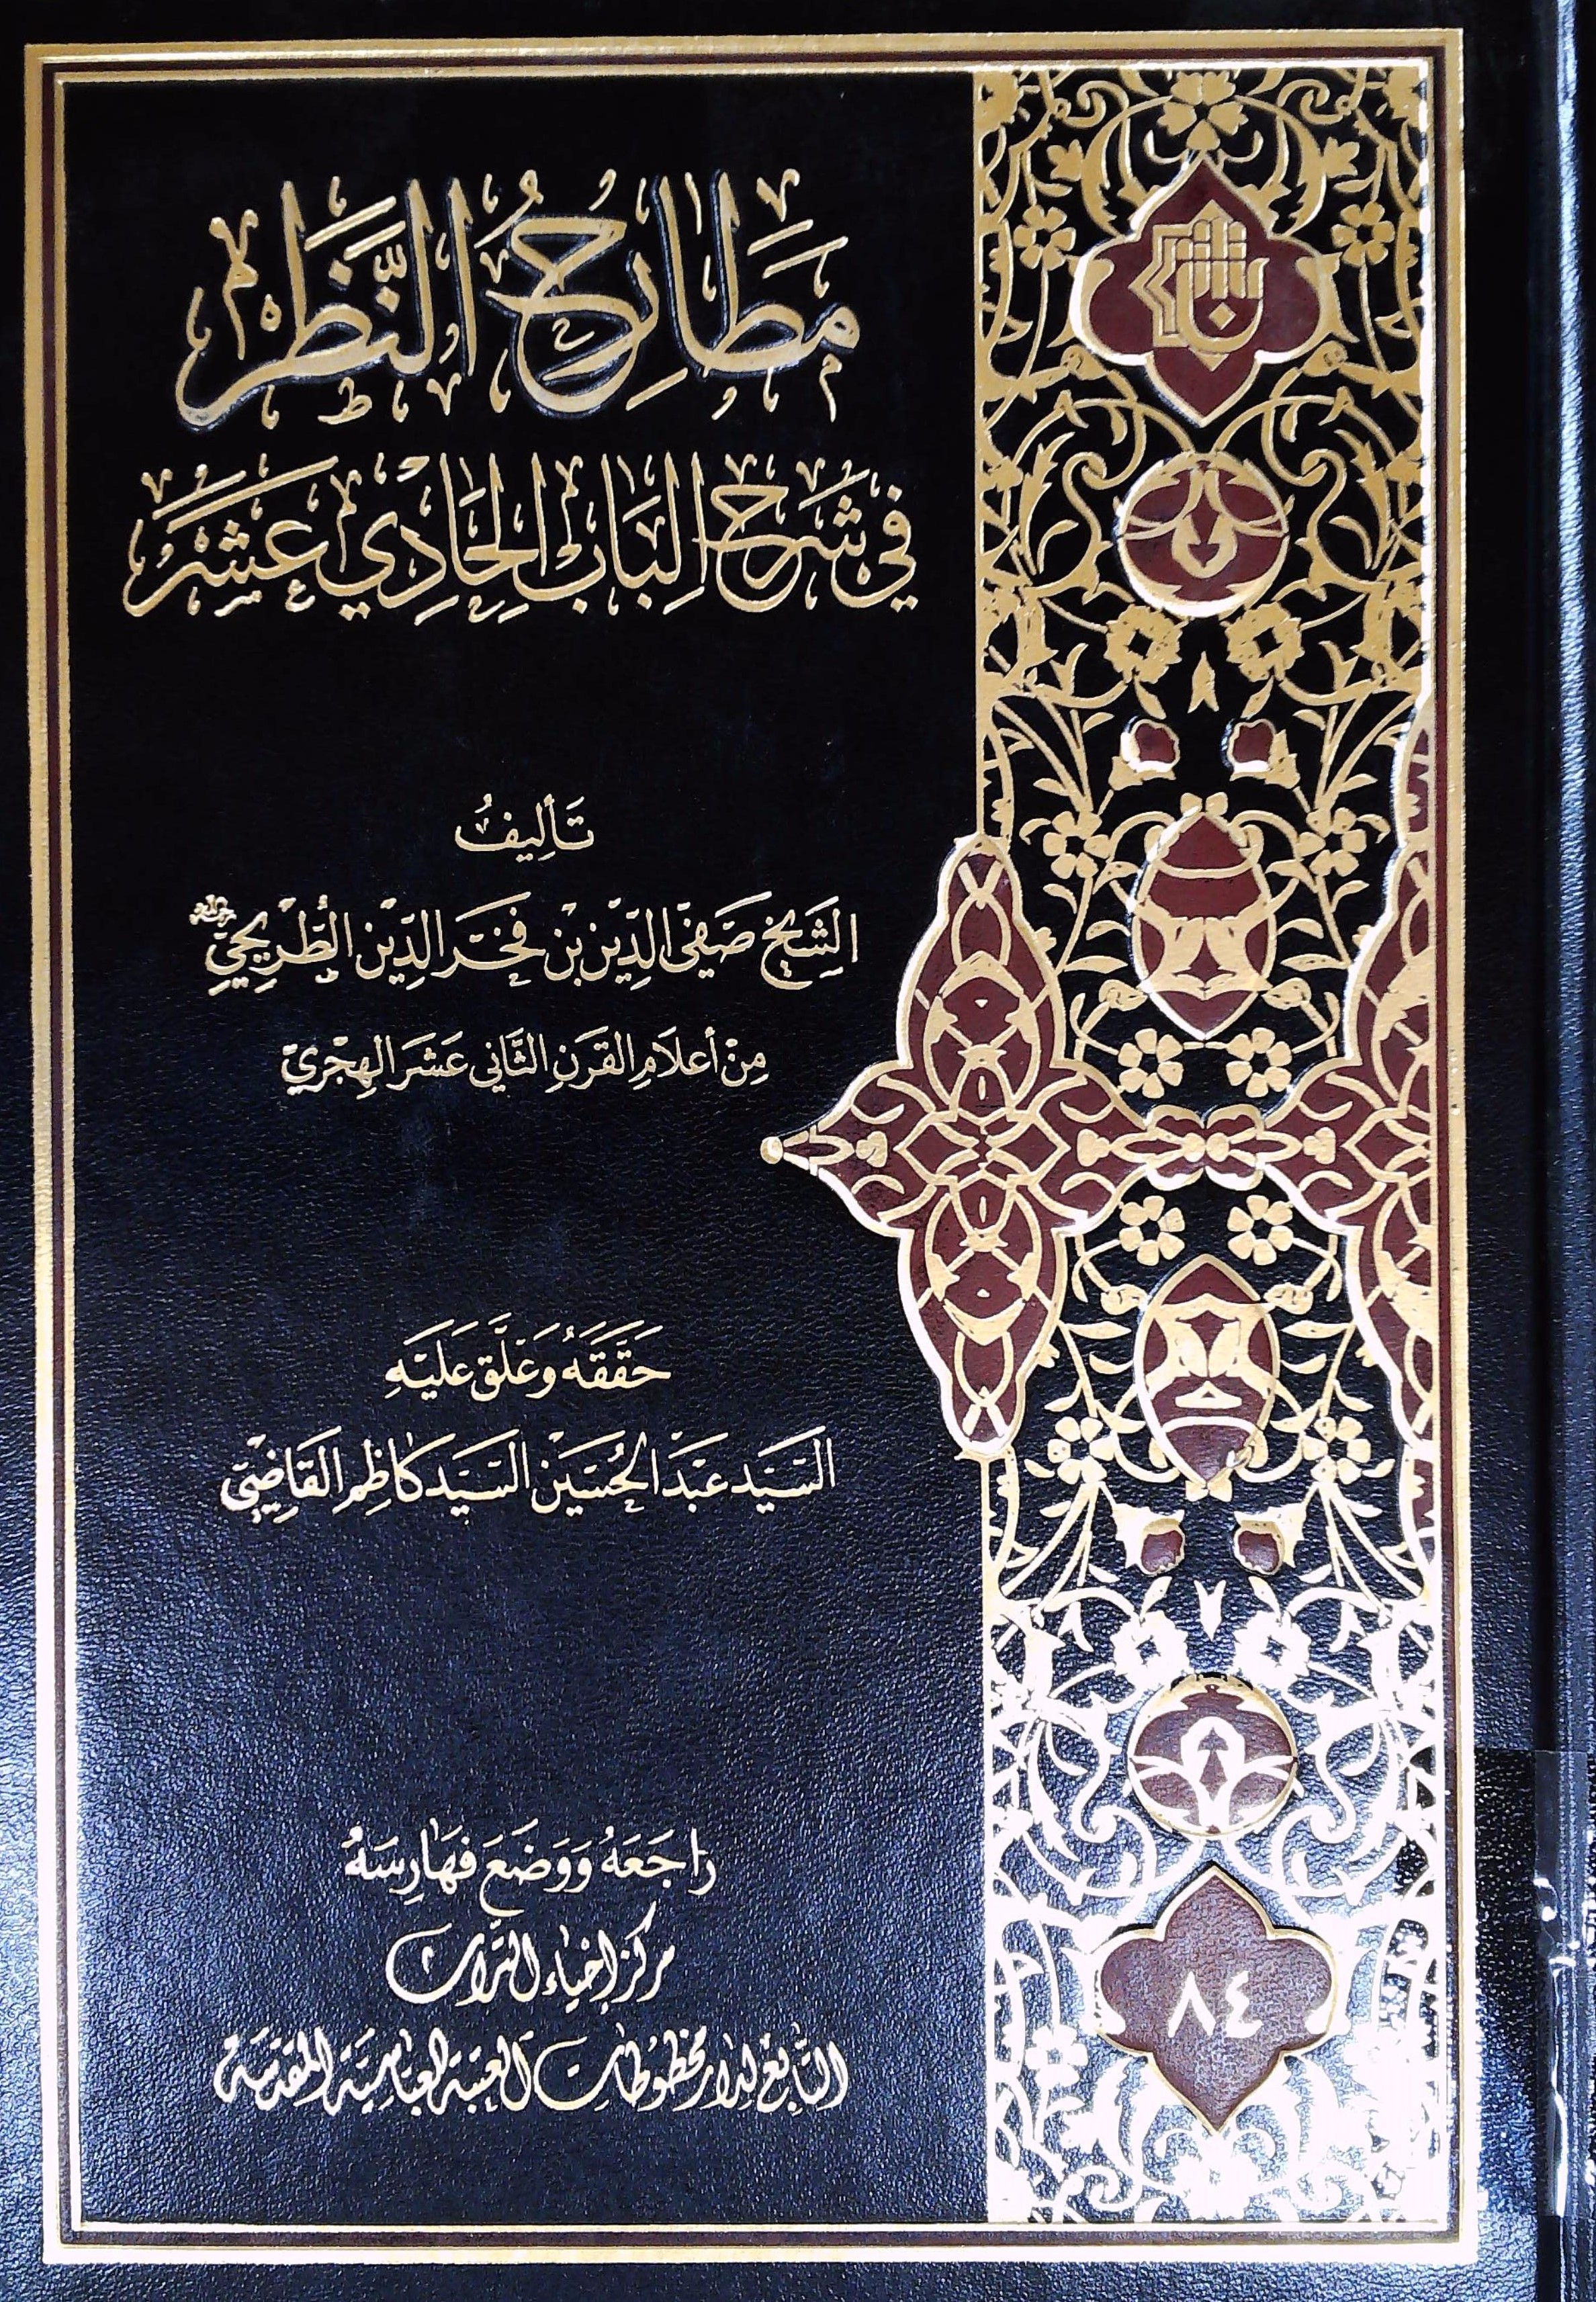 مَطَارِحُ النَّظَرِ
فِي شَرْحِ الْبَابِ الْحَادِي عَشَرَ
تَأليفُ
الشَّيْخ صَفِيّ الدِّيْن بِنْ فَخْر الدِّيْن الطُّرَيْحِيّ
مِنْ أعلَامِ القَرنِ الثَّاني عَشَر الهِجْرِيّ
حَقَّقَهُ وَعَلَّقَ عَلَيْهِ
السَّيِّد عَبْد الحُسَيْن السَّيِّد كَاظِم القَاضِيّ
رَاجَعَهُ وَوَضَعَ فَهَارِسَهُ
مركز إحْيَاء التّرَاث
التَّابِعُ لِدَار مَخْطُوطَات العَتَبَة العَبّاسِيَّة المُقَدَّسَة
٨٤